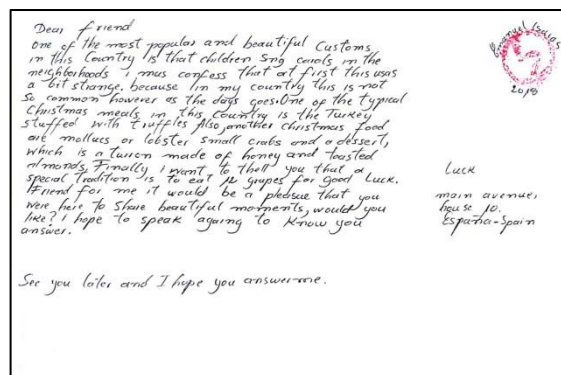 Dear friend
one of the most popular and beautiful Customs
in this Country is that children sng carols in the
neighborhoods i mus confess that at first this was
a bit strange, because in my country this is not
so common however as the days goes. One of the typical
Christmas meals in this Country is the Turkey
stuffed with truffles Also, another christmas food
are mollucs or lobster small crabs and a dessert,
which is a turron made of honey and toasted
almonds, Finally i want to thell you that a
special tradition is to eat 12 grapes for good Luck.
Friend for me it would be a pleasue that you
were here to share beautiful moments, would you
like? I hope to speak againg to know you
answer.
See you later and I hope you answer-me.
Emanuel Isaias
2018
Luck
main avenue,
house 10.
España-Spain